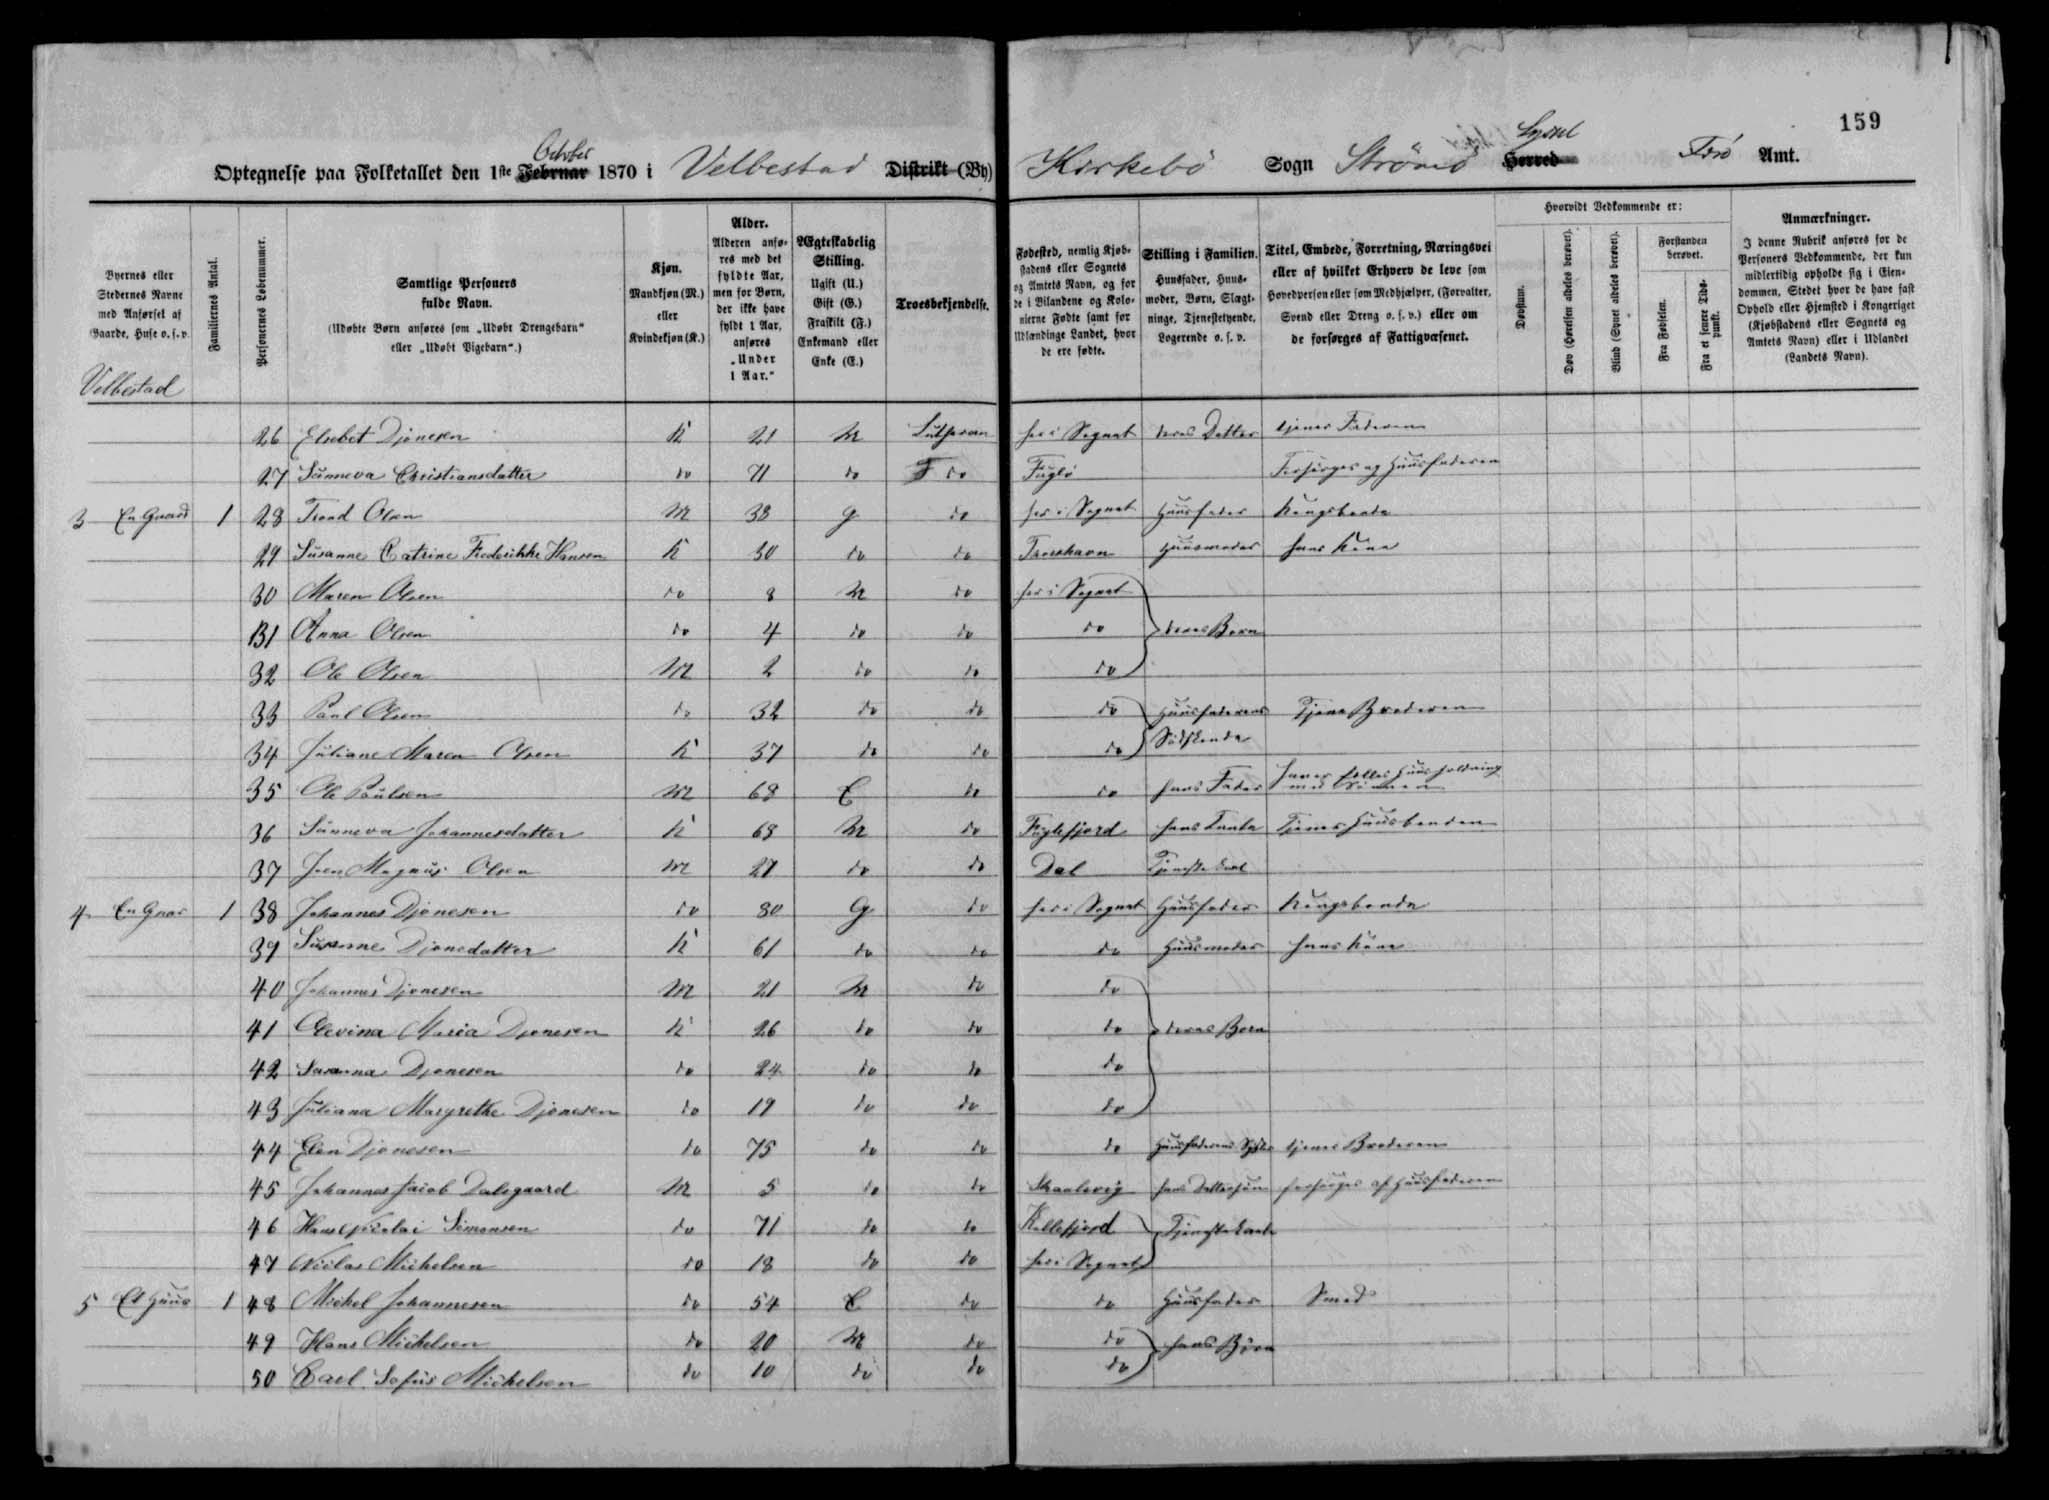 159
October Syssel
Optegnelse paa Folketallet den 1ste Februar 1870 i Velbestad Distrikt (By) Kirkebö Sogn Strömö Herred Færö Amt.
Byernes eller Stedernes Navne med Anførsel af Gaarde, Huse o. s. v.
Familiernes Antal.
Personernes Løbenummer.
Samtlige Personers fulde Navn.
(Udøbte Børn anføres som „Udøbt Drengebarn“ eller „Udøbt Pigebarn“.)
Kjøn.
Mandkjøn (M.) eller Kvindekjøn (K.)
Alder.
Alderen anføres med det fyldte Aar, men for Børn, der ikke have fyldt 1 Aar, anføres „Under 1 Aar.“
Ægteskabelig Stilling.
Ugift (U.) Gift (G.) Fraskilt (F.) Enkemand eller Enke (E.)
Troesbekjendelse.
Fødested, nemlig Kjøbstadens eller Sognets og Amtets Navn, og for de i Bilandene og Kolonierne Fødte samt for Udlændinge Landet, hvor de ere fødte.
Stilling i Familien.
Huusfader, Huusmoder, Børn, Slægtninge, Tjenestetyende, Logerende o. s. v.
Titel, Embede, Forretning, Næringsvei eller af hvilket Erhverv de leve som Hovedperson eller som Medhjælper, (Forvalter, Svend eller Dreng o. s. v.) eller om de forsørges af Fattigvæsenet.
Hvorvidt Vedkommende er:
Døvstum.
Døv (Hørelsen aldeles berøvet).
Blind (Synet aldeles berøvet).
Forstanden berøvet.
Fra Fødselen.
Fra et senere Tidspunkt.
Anmærkninger.
I denne Rubrik anføres for de Personers Vedkommende, der kun midlertidig opholde sig i Eiendommen, Stedet hvor de have fast Ophold eller Hjemsted i Kongeriget (Kjøbstadens eller Sognets og Amtets Navn) eller i Udlandet (Landets Navn).
Velbestad
26 Elsebet Djonesen K 21 U Lutheran her i Sognet deres Datter tjener Faderen
27 Sunneva Christiansdatter do 71 do do Fuglö Forsörges af Huusfaderen
3 En Gaard 1 28 Trond Olsen M 38 G do her i Sognet Huusfader Kongsbonde
29 Susanne Catrine Frederikke Hansen K 30 do do Thorshavn Huusmoder hans Kone
30 Maren Olsen do 8 U do her i Sognet
31 Anna Olsen do 4 do do do deres Børn
32 Ole Olsen M 2 do do do
33 Paul Olsen do 32 do do do Huusfaderens Tjener Broderen
34 Juliane Maren Olsen K 37 do do do Södskende
35 Ole Paulsen M 68 E do do hans Fader haver fælles Huusholdning med Sönnen
36 Sunneva Johannesdatter K 68 U do Fuglefjord hans Tante Tjener Huusbonden
37 Joen Magnus Olsen M 27 do do Dal Tjenestekarl
4 En Gaar 1 38 Johannes Djonesen do 80 G do her i Sognet Huusfader Kongsbonde
39 Susanne Djonedatter K 61 do do do Huusmoder hans Kone
40 Johannes Djonesen M 21 U do do
41 Olevina Maria Djonesen K 26 do do do deres Born
42 Susanna Djonesen do 24 do do do
43 Juliana Margrethe Djonesen do 19 do do do
44 Elen Djonesen do 75 do do do Huusfaderens Syster tjener Broderen
45 Johannes Jacob Dalsgaard M 5 do do Skaalevig hans Dattersön forsörges af Huusfaderen
46 Hans Nicolai Simonsen do 71 do do Kollefjord Tjenestekarle
47 Niclas Michelsen do 18 do do her i Sognet
5 Et Huus 1 48 Michel Johannesen do 54 E do do Huusfader Smed
49 Hans Michelsen do 20 U do do hans Börn
50 Carl Sofus Michelsen do 10 do do do